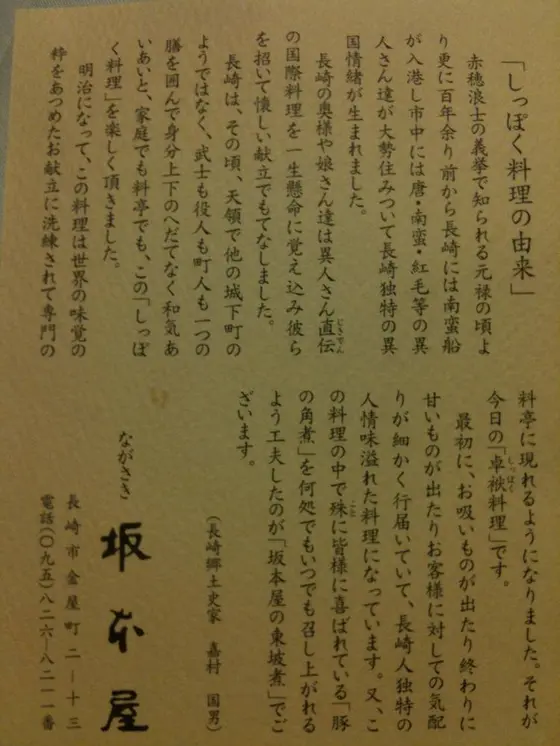 「しっぽく料理の由来」
赤穂浪士の義挙で知られる元禄の頃よ
り更に百年余り前から長崎には南蛮船
が入港し市中には唐・南蛮・紅毛等の異
人さん達が大勢住みついて長崎独特の異
国情緒が生まれました。
長崎の奥様や娘さん達は異人さん直伝
じきでん
の国際料理を一生懸命に覚え込み彼ら
を招いて懐しい献立でもてなしました。
長崎は、その頃、天領で他の城下町の
ようではなく、武士も役人も町人も一つの
膳を囲んで身分上下のへだてなく和気あ
いあいと、家庭でも料亭でも、この「しっぽ
く料理」を楽しく頂きました。
明治になって、この料理は世界の味覚の
粋をあつめたお献立に洗練されて専門の
料亭に現れるようになりました。それが
今日の「卓袱料理」です。
しっぽく
最初に、お吸いものが出たり終わりに
甘いものが出たりお客様に対しての気配
りが細かく行届いていて、長崎人独特の
人情味溢れた料理になっています。又、こ
の料理の中で殊に皆様に喜ばれている「豚
こと
の角煮」を何処でもいつでも召し上がれる
よう工夫したのが「坂本屋の東坡煮」でご
ざいます。
(長崎郷土史家 嘉村 国男)
ながさき 坂本屋
長崎市金屋町二−十三
電話(〇九五)八二六−八二一一番